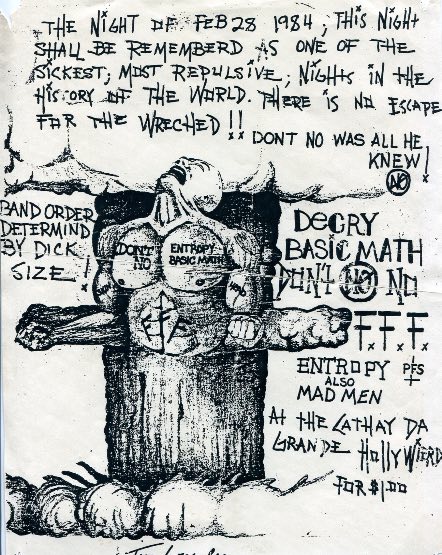 THE NIGHT OF FEB 28 1984, THIS NIGHT
SHALL BE REMEMBERD AS ONE OF THE
SICKEST; MOST REPULSIVE; NIGHTS IN THE
HISTORY OF THE WORLD. THERE IS NO ESCAPE
FOR THE WRECHED!!
DONT NO WAS ALL HE
KNEW!
NO
BAND ORDER
DETERMIND
BY DICK
SIZE!
DON'T
NO
ENTROPY
BASIC MATH
FFF
DECRY
BASIC MATH
DON'T NO NO
F.F.F.
ENTROPY PFS
ALSO
MAD MEN
AT THE CATHAY DA
GRANDE HOLLYWIERD
FOR $1.00